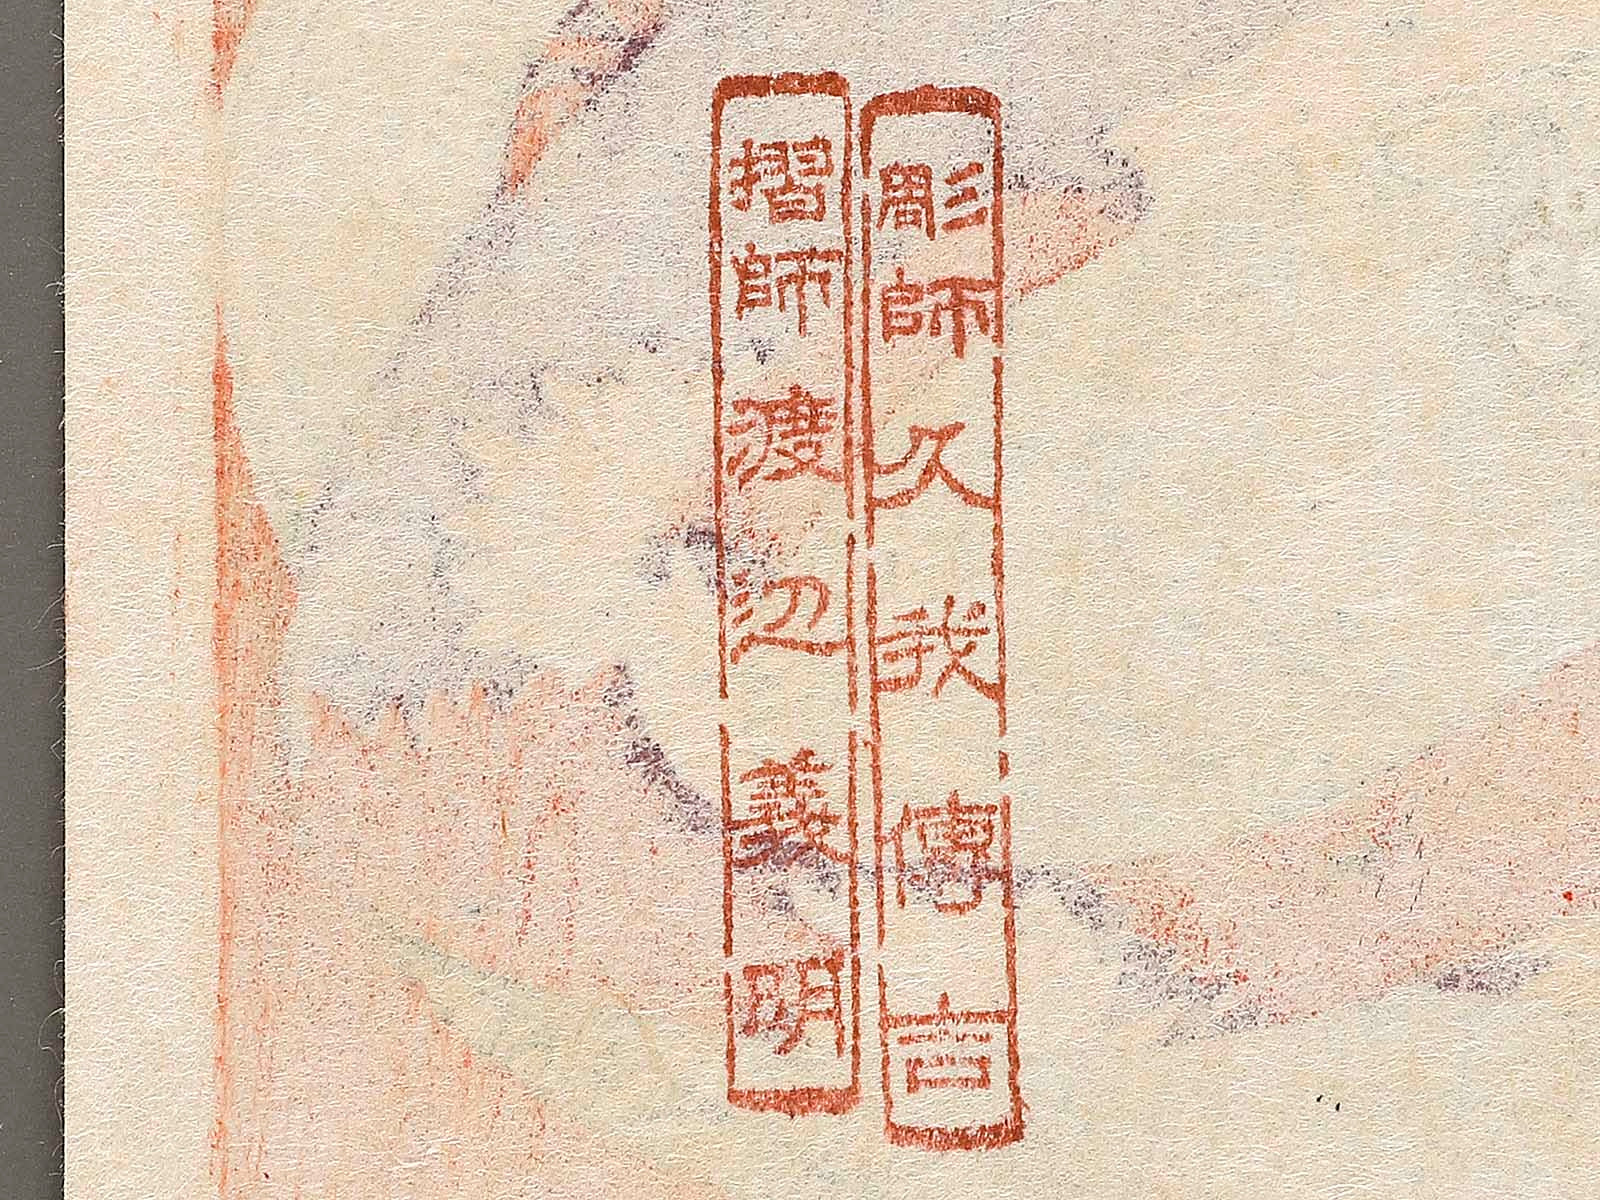 彫師久我傳吉
摺師渡辺義明